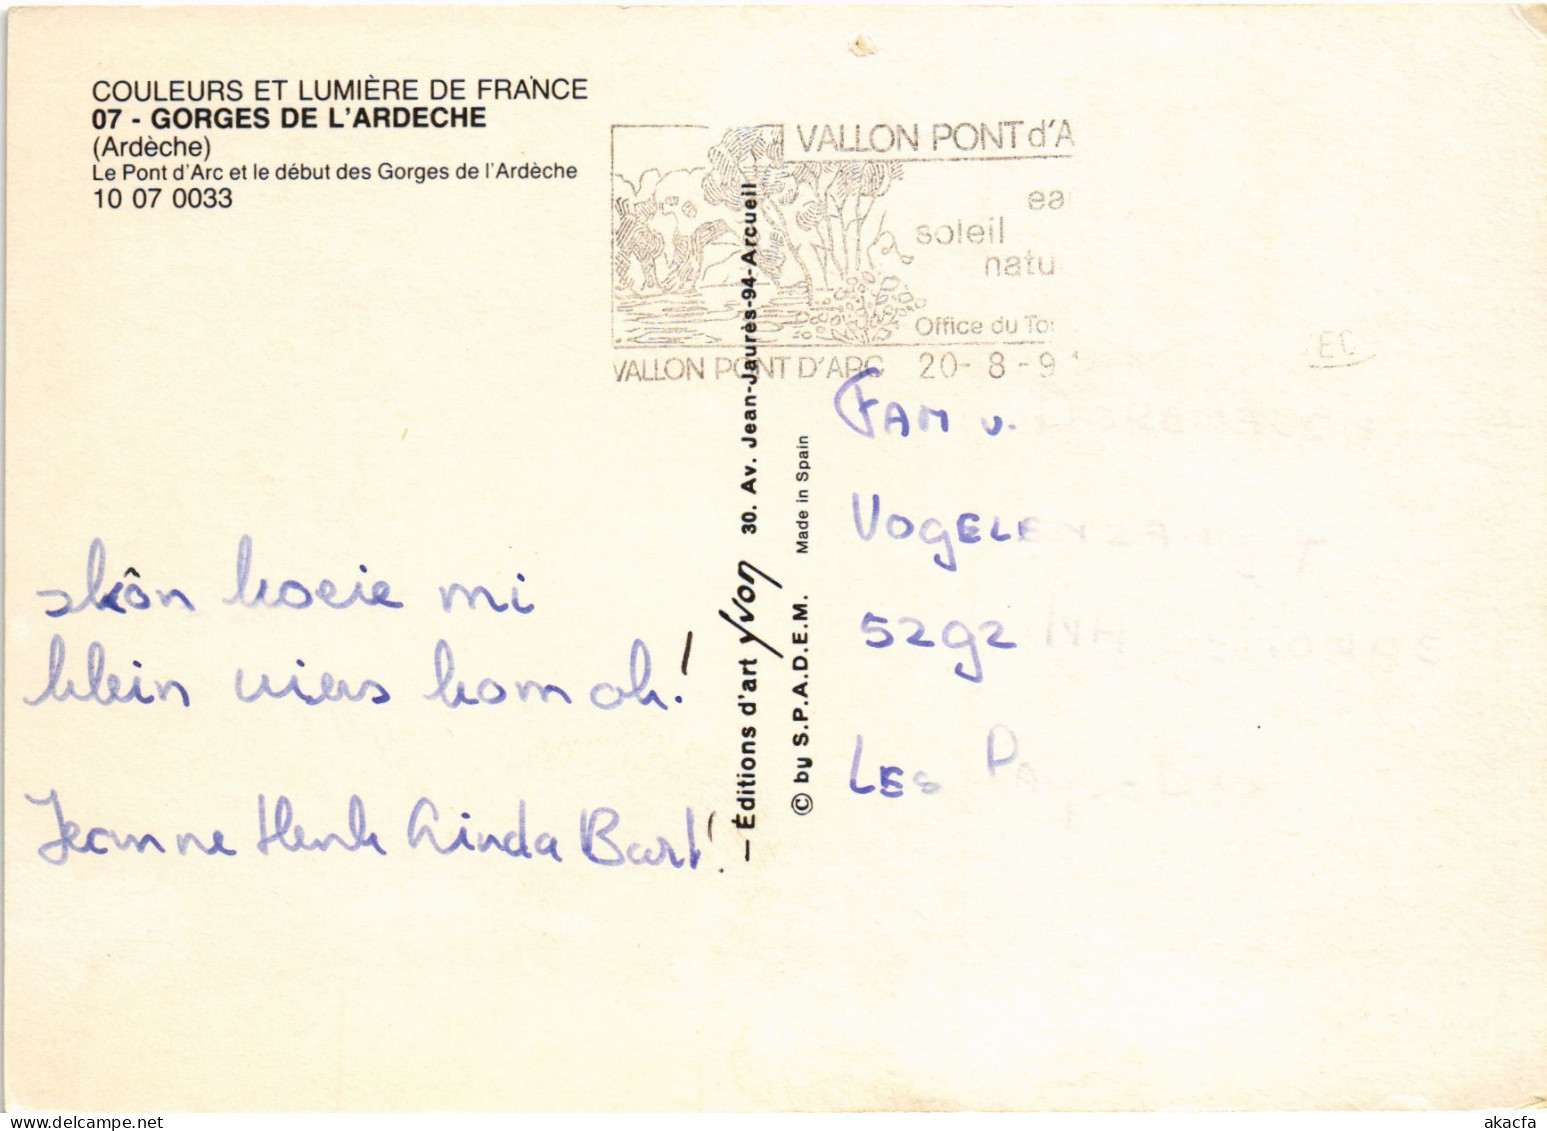 COULEURS ET LUMIÈRE DE FRANCE
07 - GORGES DE L'ARDECHE
(Ardèche)
Le Pont d'Arc et le début des Gorges de l'Ardèche
10 07 0033
VALLON PONT d'A
ea
soleil
natu
Office du To
VALLON PONT D'ARC 20-8-9
EC
FAM v.
VOGELE
5292
LES
skôn koeie mi
klein viers kom oh!
Jeanne Henk Linda Bart!
— Éditions d'art Yvon 30. Av. Jean-Jaurès-94-Arcueil
© by S.P.A.D.E.M. Made in Spain
akacfa